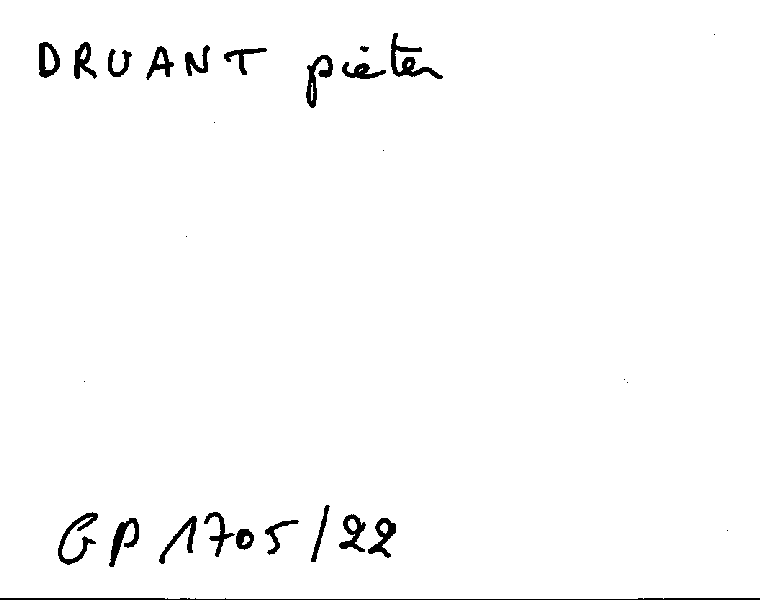 DRUANT pieter
GP 1705/22